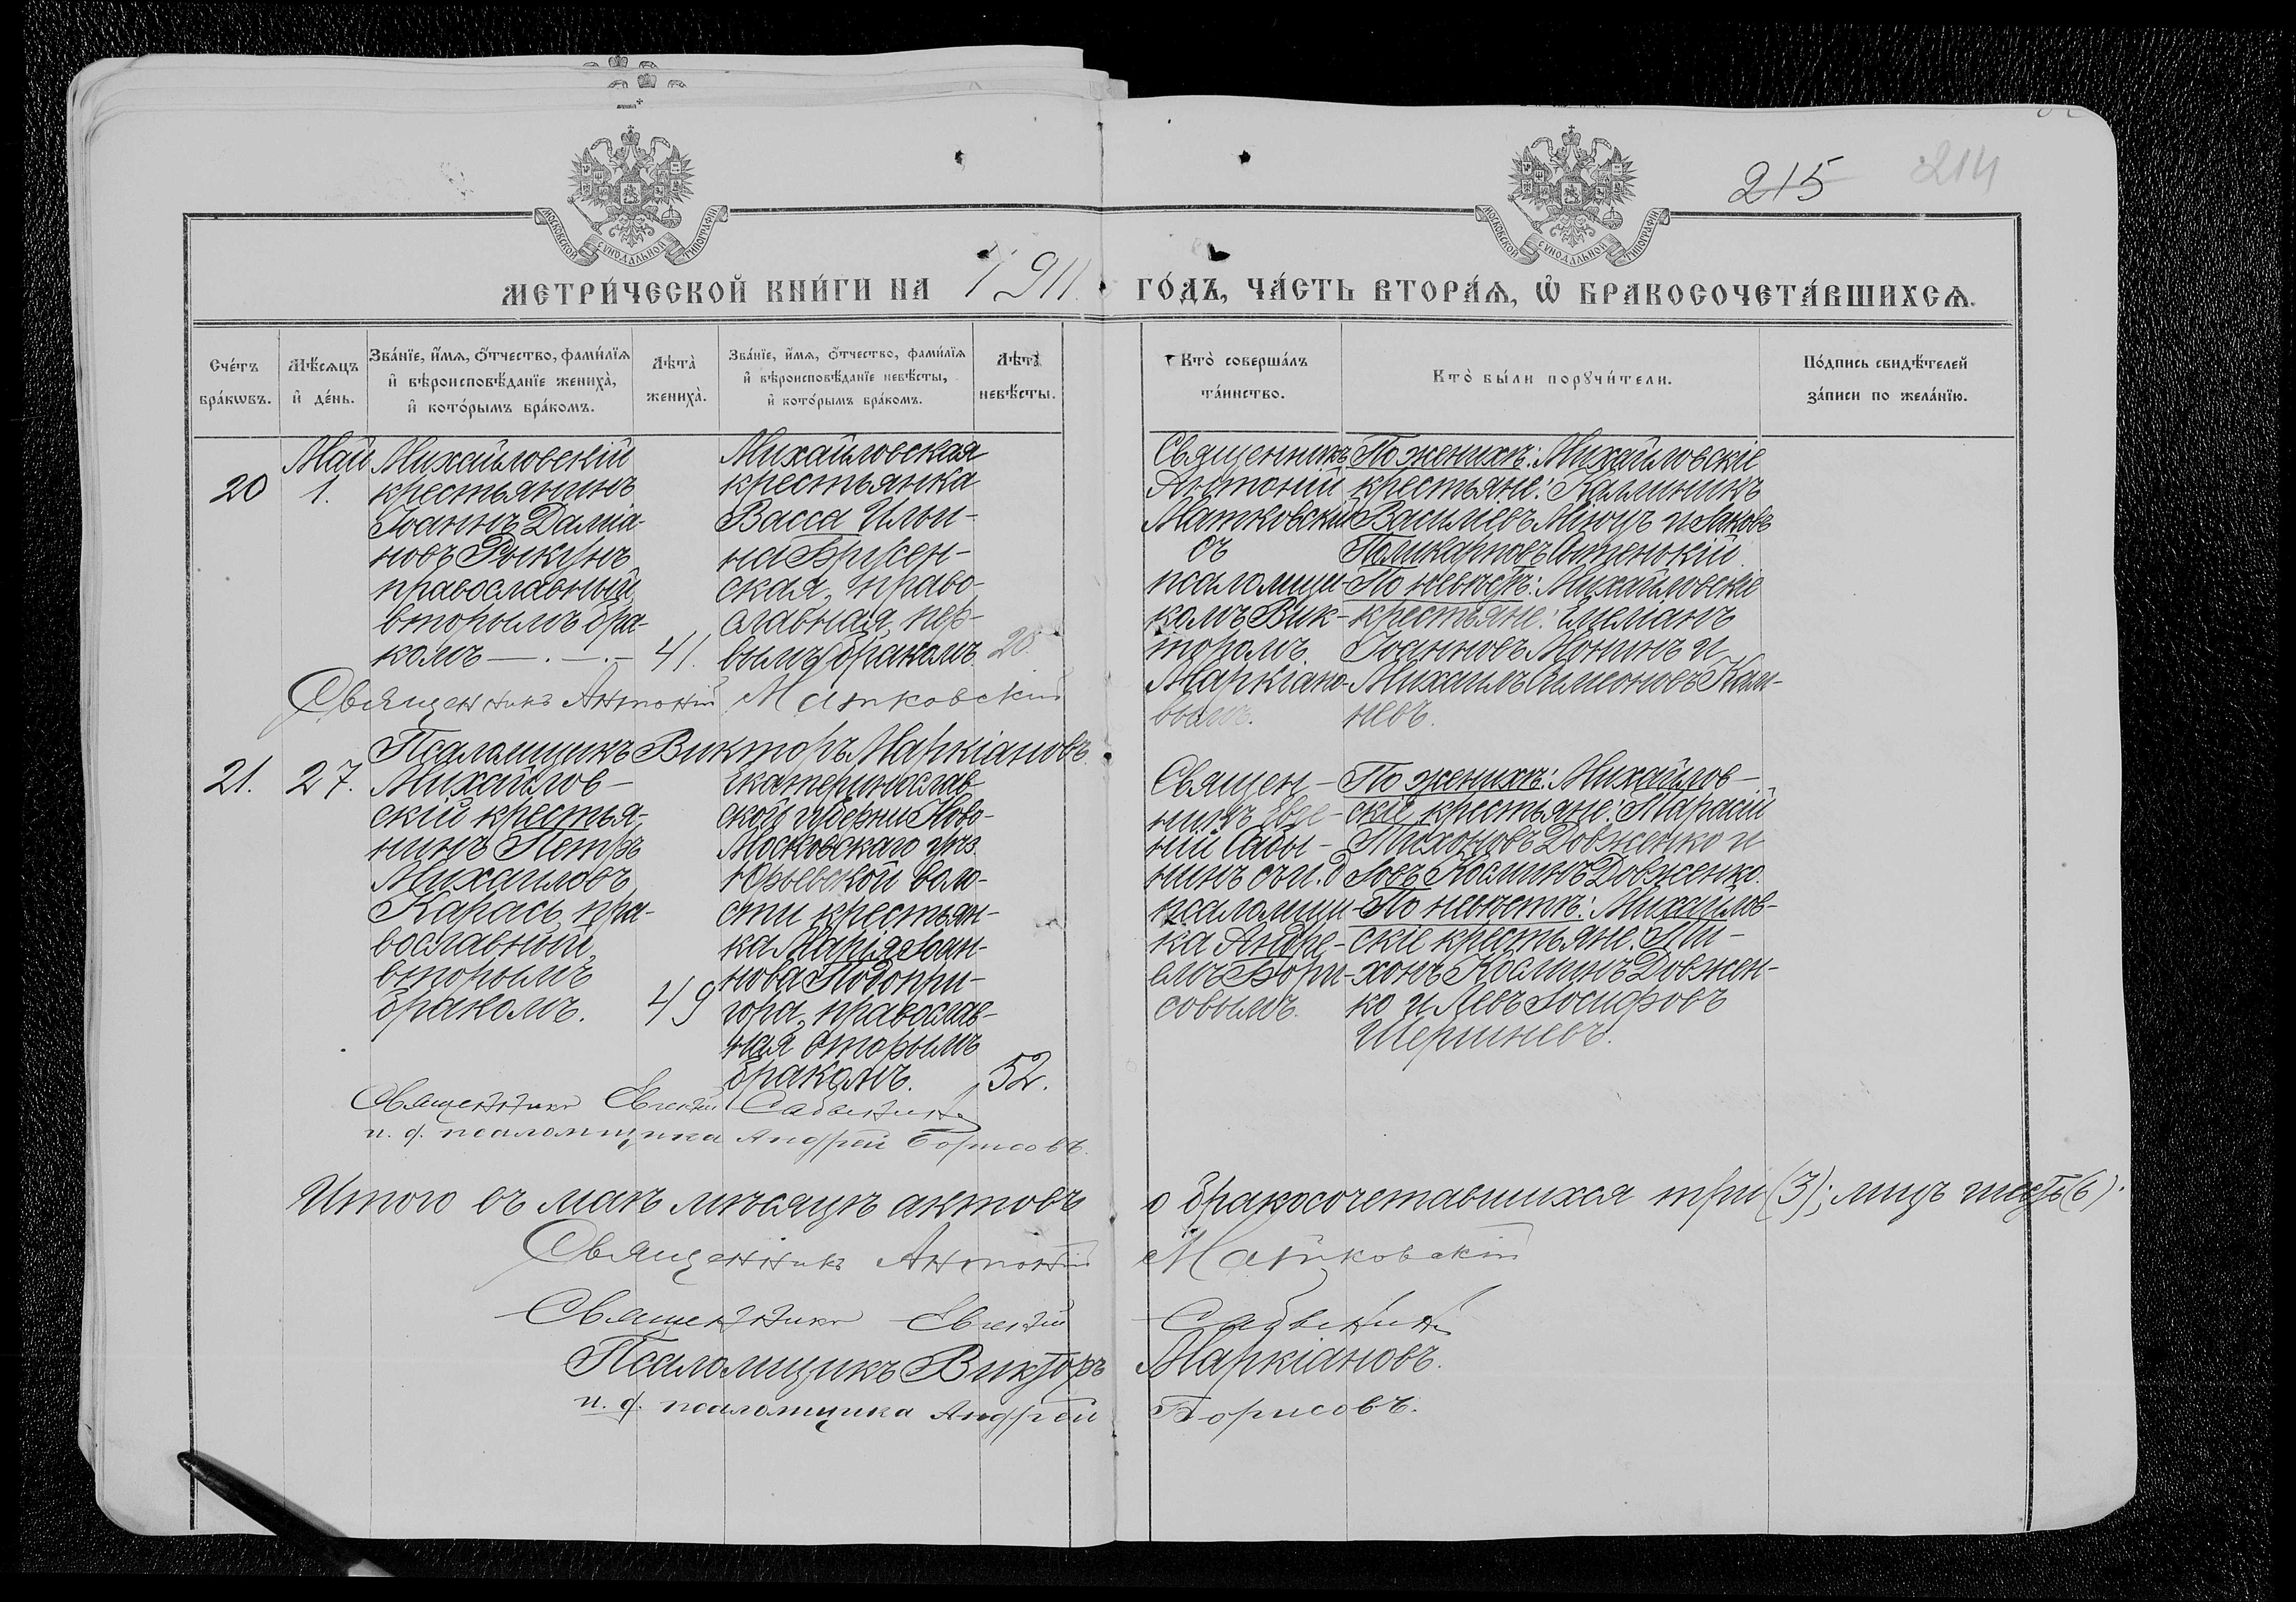 215 214
МОСКОВСКОЙ СУНОДАЛЬНОЙ ТИПОГРАФІИ
МОСКОВСКОЙ СУНОДАЛЬНОЙ ТИПОГРАФІИ
МЕТРИ́ЧЕСКОЙ КНИ́ГИ НА 1911 ГО́ДЪ, ЧА́СТЬ ВТОРА́Ѧ, Ѽ БРАКОСОЧЕТА́ВШИХСѦ.
Сче́тъ
бра́кѡвъ.
Мѣ́сѧцъ
и҆ де́нь.
Зва́нїе, и҆́мѧ, ѻ҆́тчество, фами́лїѧ
и҆ вѣроисповѣ́данїе жениха̀,
и҆ кото́рымъ бра́комъ.
Лѣта̀
жениха̀.
Зва́нїе, и҆́мѧ, ѻ҆́тчество, фами́лїѧ
и҆ вѣроисповѣ́данїе невѣ́сты,
и҆ кото́рымъ бра́комъ.
Лѣта̀
невѣ́сты.
Кто̀ соверша́лъ
та́инство.
Кто̀ бы́ли порꙋчи́тели.
По́дпись свидѣ́телей
за́писи по жела́нїю.
20
Май
1.
Михайловскій
крестьянинъ
Іоаннъ Даміа-
новъ Рыкунъ
православный,
вторымъ бра-
комъ — . — . —
41.
Михайловская
крестьянка
Васса Ильи-
на Бржен-
ская, право-
славная, пер-
вымъ бракомъ
20.
Священникъ
Антоній
Матковскій
съ
псаломщи-
комъ Вик-
торомъ
Маркіано-
вымъ.
По женихѣ: Михайловскіе
крестьяне: Каллиникъ
Василіевъ Міюцъ и Іаковъ
Поликарповъ Отенокій.
По невѣстѣ: Михайловскіе
крестьяне: Емеліанъ
Іоанновъ Мокинъ и
Михаилъ Симеоновъ Кам-
невъ.
Священникъ Антоній Матковскій
Псаломщикъ Викторъ Маркіановъ.
21.
27.
Михайлов-
скій крестья-
нинъ Петръ
Михаиловъ
Карась, пра-
вославный,
вторымъ
бракомъ.
49
Екатеринослав-
ской губерніи Ново-
Московскаго уѣз.
Юрьевской воло-
сти крестьян-
ка Марія Іоан-
нова Подопри-
гора, православ-
ная вторымъ
бракомъ.
52.
Священ-
никъ Евге-
ній Сабы-
нинъ съ и. д
псаломщи-
ка Андре-
емъ Бори-
совымъ.
По женихѣ: Михайлов-
скіе крестьяне: Тарасій
Тихоновъ Довженко и
Іовъ Косминъ Довженко.
По невѣстѣ: Михайлов-
скіе крестьяне: Ти-
хонъ Косминъ Довжен-
ко и Левъ Іосифовъ
Шершневъ.
Священникъ Евгеній Сабынинъ
и. д. псаломщика Андрей Борисовъ.
Итого въ маѣ мѣсяцѣ актовъ о бракосочетавшихся три (3); лицъ шесть (6).
Священникъ Антоній Матковскій
Священникъ Евгеній Сабынинъ
Псаломщикъ Викторъ Маркіановъ.
и. д. псаломщика Андрей Борисовъ.